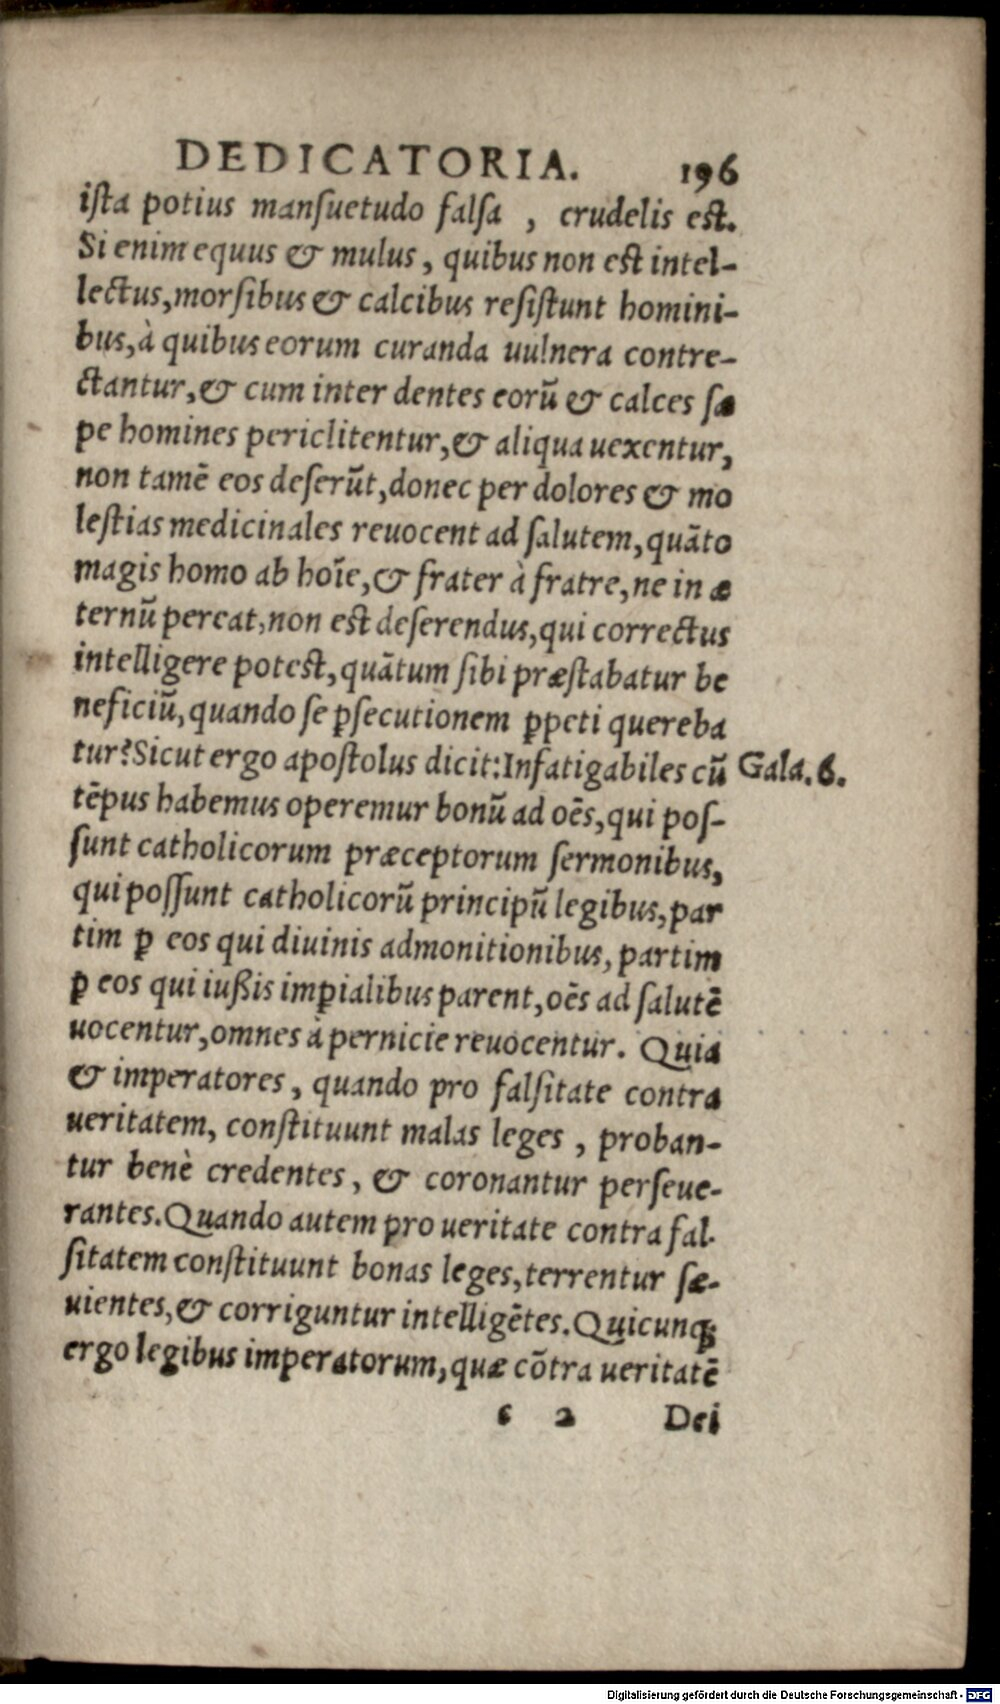 DEDICATORIA. 196
ista potius mansuetudo falsa , crudelis est.
Si enim equus & mulus, quibus non est intel-
lectus, morsibus & calcibus resistunt homini-
bus, à quibus eorum curanda uulnera contre-
ctantur, & cum inter dentes eorū & calces sæ
pe homines periclitentur, & aliqua uexentur,
non tamē eos deserūt, donec per dolores & mo
lestias medicinales reuocent ad salutem, quāto
magis homo ab hoīe, & frater à fratre, ne in æ
ternū pereat, non est deserendus, qui correctus
intelligere potest, quātum sibi præstabatur be
neficiū, quando se ꝑsecutionem ꝑpeti quereba
tur? Sicut ergo apostolus dicit: Infatigabiles cū
Gala. 6.
tēpus habemus operemur bonū ad oēs, qui pos-
sunt catholicorum præceptorum sermonibus,
qui possunt catholicorū principū legibus, par
tim ꝑ eos qui diuinis admonitionibus, partim
ꝑ eos qui iußis imꝑialibus parent, oēs ad salutē
uocentur, omnes à pernicie reuocentur. Quia
& imperatores, quando pro falsitate contra
ueritatem, constituunt malas leges , proban-
tur benè credentes, & coronantur perseue-
rantes. Quando autem pro ueritate contra fal-
sitatem constituunt bonas leges, terrentur sæ-
uientes, & corriguntur intelligētes. Quicunqꝫ
ergo legibus imperatorum, quæ cōtra ueritatē
2 Dei
Digitalisierung gefördert durch die Deutsche Forschungsgemeinschaft - DFG